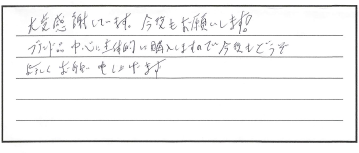 大変感謝しています。今後もお願いします。
ブランド品中心に全体的に購入しますので今後もどうぞ
よろしくお願い申し上げます